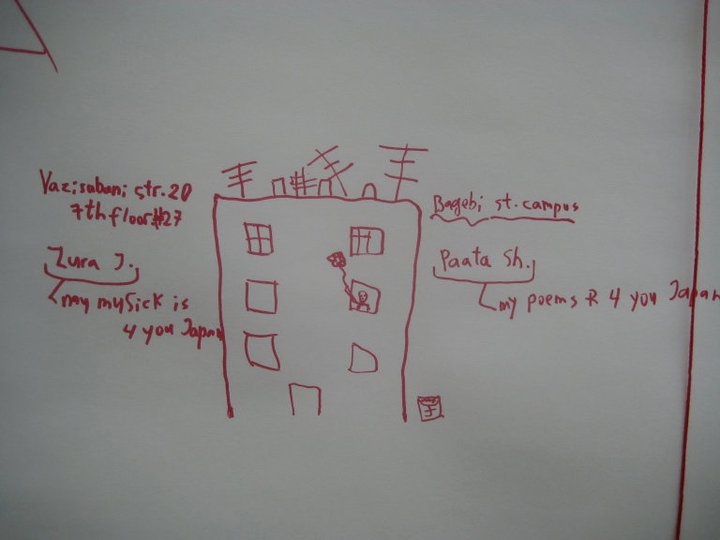 Vazisubani str. 20
7th floor #27
Zura J.
my mysick is
4 you Japan
Bagebi st. campus
Paata Sh.
my poems R 4 you Japan